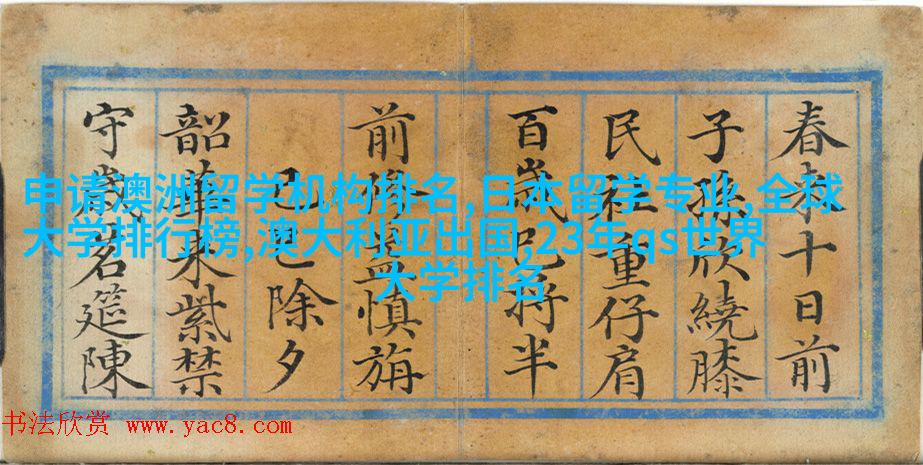 春来十日前
子孫欣繞膝
民社重仔肩
百歲已将半
前脩益慎旃
己巳除夕
韶華来紫禁
守歲茗筵陳
申请澳洲留学机构排名,日本留学专业,全球
大学排行榜,澳大利亚出国,23年qs世界
大学排名
书法欣赏 www.yac8.com